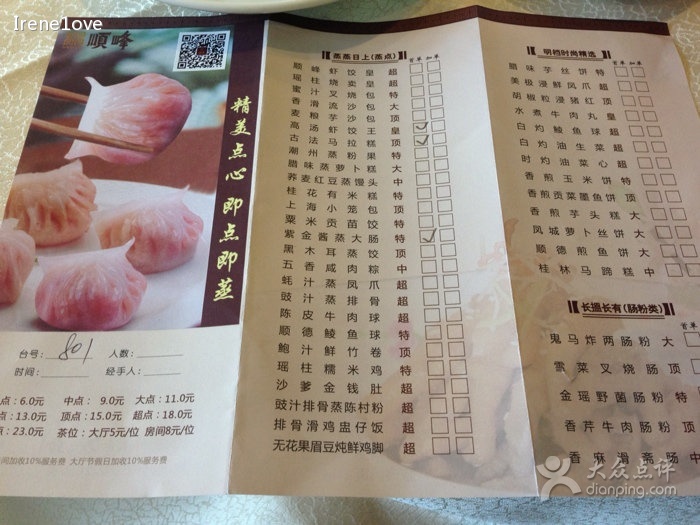 Irene1ove
順峰
精美点心 即点即蒸
台号：801 人数：
时间： 经手人：
点：6.0元 中点：9.0元 大点：11.0元
点：13.0元 顶点：15.0元 超点：18.0元
点：23.0元 茶位：大厅5元/位 房间8元/位
间加收10%服务费 大厅节假日加收10%服务费
蒸蒸日上(蒸点) 首单 加单
顺峰虾饺皇 超
瑶柱烧卖皇 超
蜜汁叉烧包 特
香滑流沙包 大
麦粮芋沙包 顶
高汤虾饺王 皇
古法马拉糕 顶
潮州蒸粉果 特
腊味蒸萝卜糕 大
荞麦红豆蒸馒头 中
桂花有米糕 特
上海小笼包 顶
粟米贡苗饺 特
紫金酱蒸大肠 特
黑木耳蒸饺 顶
五香咸肉粽 中
蚝汁蒸凤爪 超
豉汁蒸排骨 超
陈皮牛肉球 顶
顺德鲮鱼球 特
鲍汁鲜竹卷 顶
瑶柱糯米鸡 特
沙爹金钱肚 超
豉汁排骨蒸陈村粉 超
排骨滑鸡盅仔饭 超
无花果眉豆炖鲜鸡脚 超
明档时尚精选 首单 加单
腊味芋丝饼 特
美极浸鲜凤爪 超
胡椒粒浸猪红 顶
水煮牛肉丸 皇
白灼鲮鱼球 超
白灼油生菜 超
时灼油菜心 超
香煎玉米饼 特
香煎贡菜墨鱼饼 顶
香煎芋头糕 大
凤城萝卜丝饼 大
顺德煎鱼饼 大
桂林马蹄糕 中
长搵长有(肠粉类) 首单
鬼马炸两肠粉 大
雪菜叉烧肠 顶
金瑶野菌肠粉 特
香芹牛肉肠粉 顶
香麻滑斋肠 中
大众点评
dianping.com